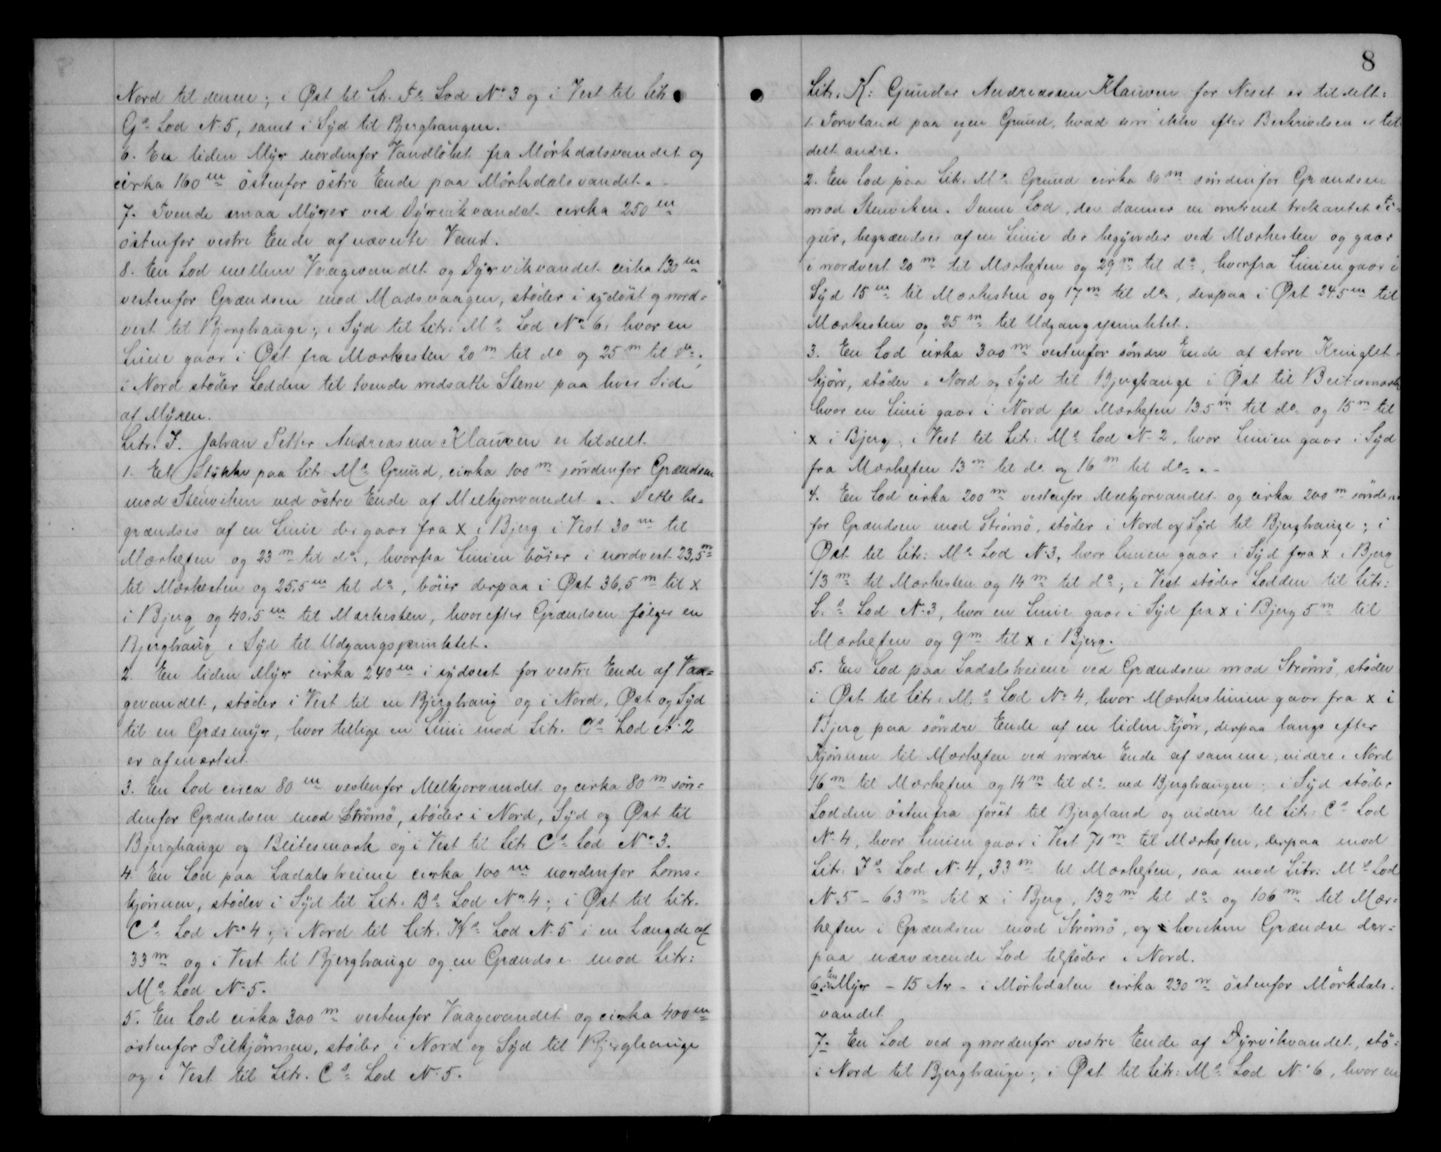 Nord til denne; i Øst til Lit. F.a Lod No 3 og i Vest til Litr
G.a Lod N. 5, samt i Syd til Bjerghaugen.
6. En liden Myr nordenfor Vandløbet fra Mørkdalsvandet og
cirka 160 m østenfor østre Ende paa Mørkdalsvandet.
7. Tvende smaa Myrer ved Dyrvikvandet cirka 250 m
østenfor vestre Ende af nævnte Vand.
8. En Lod mellem Vaagevandet og Dyrvikvandet cirka 130 m
vestenfor Grændsen mod Madsvaagen, støder i sydøst og nord-
vest til Bjerghauge; i Syd til Litr: M.a Lod No 6, hvor en
Linie gaar i Øst fra Mærkesten 20 m til do og 25 m til do;
i Nord støder Lodden til tvende nedsatte Stene paa hver Side
af Myren.
Litr. J. Jahvan Petter Andreassen Klauven er tildelt
1. Et Stykke paa Litr. M.a Grund, cirka 100 m søndenfor Grændsen
mod Stenviken ved østre Ende af Melkjorvandet. Dette be-
grændses af en Linie der gaar fra x i Bjerg i Vest 30 m til
Mærkesten og 23 m til do, hvorfra Linien bøier i nordvest 23,5 m
til Mærkesten og 25,5 m til do, bøier derpaa i Øst 36,5 m til x
i Bjerg og 40,5 m til Mærkesten, hvorefter Grændsen følger en
Bjerghaug i Syd til Udgangspunktet.
2. En liden Myr cirka 240 m i sydvest for vestre Ende af Vaa-
gevandet, støder i Vest til en Bjerghaug og i Nord, Øst og Syd
til en Græsmyr, hvor tillige en Linie mod Litr. C.a Lod N. 2
er afmærket.
3. En Lod circa 80 m vestenfor Melkjorvandet og cirka 80 m søn-
denfor Grændsen mod Strømø, støder i Nord, Syd og Øst til
Bjerghauge og Beitesmark og i Vest til Litr C.a Lod No 3.
4. En Lod paa Ladalsheiene cirka 100 m nordenfor Loms-
kjønnen, støder i Syd til Litr. B.a Lod No 4; i Øst til Litr.
C.a Lod No 4; i Nord til Litr. K.a Lod N. 5 i en Længde af
33 m og i Vest til Bjerghauge og en Grændse mod Litr:
M.a Lod N. 5.
5. En Lod cirka 300 m vestenfor Vaagevandet og cirka 400 m
østenfor Pilkjønnen, støder i Nord og Syd til Bjerghauge
og i Vest til Litr. C.a Lod N. 5.
8
Litr. K: Gunder Andreassen Klauven for Neset er tildelt:
1. Torvland paa egen Grund, hvad som ikke efter Beskrivelsen er til-
delt andre.
2. En Lod paa Litr. M.a Grund cirka 80 m søndenfor Grændsen
mod Stenviken. Denne Lod, der danner en omtrent trekantet Fi-
gur, begrændses af en Linie der begynder ved Mærkesten og gaar
i nordvest 20 m til Mærkesten og 29 m til do, hvorfra Linien gaar i
Syd 15 m til Mærkesten og 17 m til do, derpaa i Øst 24,5 m til
Mærkesten og 25 m til Udgangspunktet.
3. En Lod cirka 300 m vestenfor søndre Ende af store Kringlet-
kjørr, støder i Nord og Syd til Bjerghauge i Øst til Beitesmark
hvor en Linie gaar i Nord fra Mærkesten 13,5 m til do og 15 m til
x i Bjerg; i Vest til Litr: M.a Lod N. 2, hvor Linien gaar i Syd
fra Mærkesten 13 m til do og 16 m til do.
4. En Lod cirka 200 m vestenfor Melkjorvandet og cirka 200 m sønden-
for Grændsen mod Strømø, støder i Nord og Syd til Bjerghauge; i
Øst til Litr: M.a Lod N. 3, hvor Linien gaar i Syd fra x i Bjerg
13 m til Mærkesten og 14 m til do; i Vest støder Lodden til Litr:
L.a Lod N. 3, hvor en Linie gaar i Syd fra x i Bjerg 5 m til
Mærkesten og 9 m til x i Bjerg.
5. En Lod paa Ladalsheiene ved Grændsen mod Strømø, støder
i Øst til Litr. M.a Lod No 4, hvor Mærkeslinien gaar fra x i
Bjerg paa søndre Ende af en liden Kjørr, derpaa langs efter
Kjørnen til Mærkesten ved nordre Ende af samme, videre i Nord
96 m til Mærkesten og 14 m til do ved Bjerghaugen; i Syd støder
Lodden østenfra først til Bjergland og videre til Litr: C.a Lod
N. 4, hvor Linien gaar i Vest 71 m til Mærkesten, derpaa mod
Litr. J.a Lod N. 4, 33 m til Mærkesten, saa mod Litr: M.a Lod
N. 5 - 63 m til x i Bjerg, 132 m til do og 106 m til Mær-
kesten i Grændsen mod Strømø, og hvilken Grændse der-
paa nærværende Lod tilstøder i Nord.
6. En Myr - 15 Ar - i Mørkdalen cirka 230 m østenfor Mørkdals-
vandet
7. En Lod ved og nordenfor vestre Ende af Dyrvikvandet, stø-
i Nord til Bjerghauge; i Øst til Litr: M.a Lod N. 6, hvor en